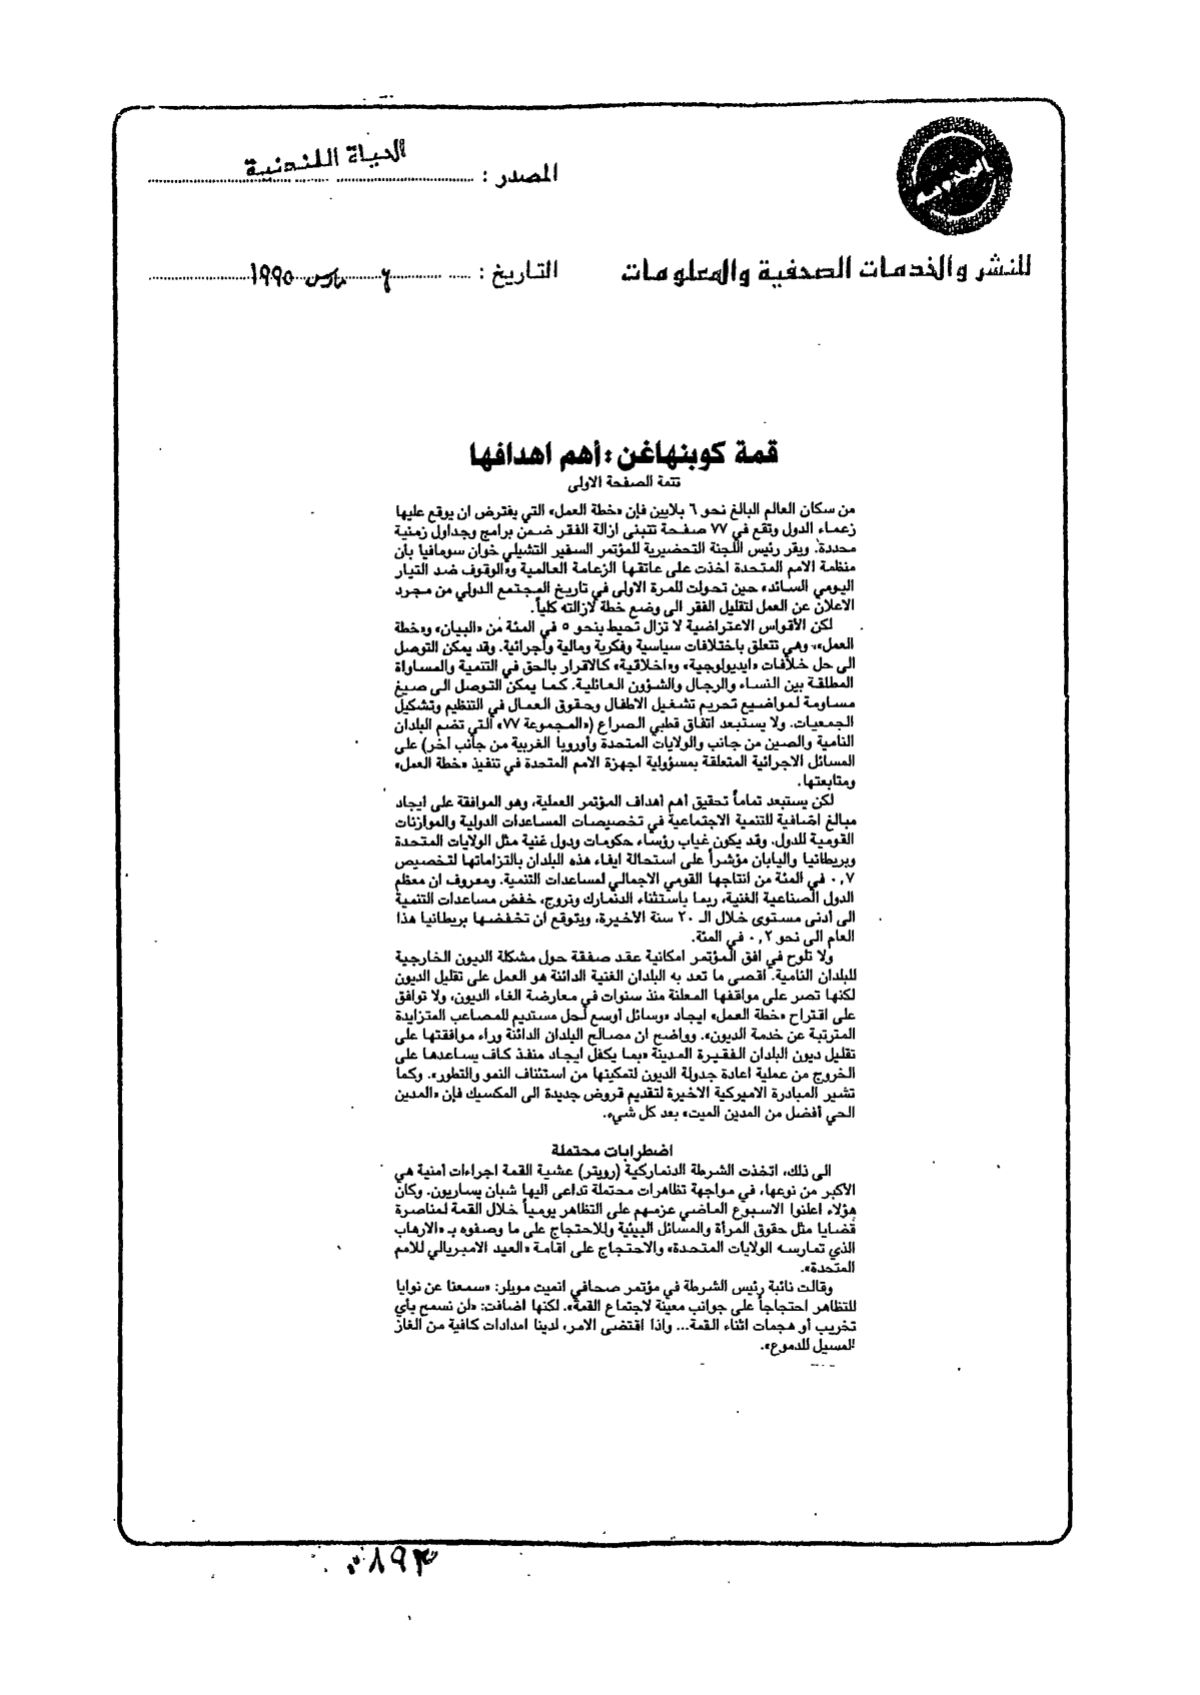 المصدر : الحياة اللندنية
للنشر والخدمات الصحفية والمعلومات
التاريخ : ٦ مارس ١٩٩٥
قمة كوبنهاغن : أهم اهدافها
تتمة الصفحة الاولى
من سكان العالم البالغ نحو ٦ بلايين فإن «خطة العمل» التي يفترض ان يوقع عليها
زعماء الدول وتقع في ٧٧ صفحة تتبنى ازالة الفقر ضمن برامج وجداول زمنية
محددة. ويقر رئيس اللجنة التحضيرية للمؤتمر السفير التشيلي خوان سومافيا بأن
منظمة الامم المتحدة اخذت على عاتقها الزعامة العالمية و«الوقوف ضد التيار
اليومي السائد» حين تحولت للمرة الاولى في تاريخ المجتمع الدولي من مجرد
الاعلان عن العمل لتقليل الفقر الى وضع خطة لازالته كلياً.
لكن الأقواس الاعتراضية لا تزال تحيط بنحو ٥ في المئة من «البيان» و«خطة
العمل»، وهي تتعلق باختلافات سياسية وفكرية ومالية وأجرائية. وقد يمكن التوصل
الى حل خلافات «ايديولوجية» و«اخلاقية» كالاقرار بالحق في التنمية والمساواة
المطلقة بين النساء والرجال والشؤون العائلية. كما يمكن التوصل الى صيغ
مساومة لمواضيع تحريم تشغيل الاطفال وحقوق العمال في التنظيم وتشكيل
الجمعيات. ولا يستبعد اتفاق قطبي الصراع («المجموعة ٧٧» التي تضم البلدان
النامية والصين من جانب والولايات المتحدة وأوروبا الغربية من جانب آخر) على
المسائل الاجرائية المتعلقة بمسؤولية اجهزة الامم المتحدة في تنفيذ «خطة العمل»
ومتابعتها.
لكن يستبعد تماماً تحقيق أهم أهداف المؤتمر العملية، وهو الموافقة على ايجاد
مبالغ اضافية للتنمية الاجتماعية في تخصيصات المساعدات الدولية والموازنات
القومية للدول. وقد يكون غياب رؤساء حكومات ودول غنية مثل الولايات المتحدة
وبريطانيا واليابان مؤشراً على استحالة ايفاء هذه البلدان بالتزاماتها لتخصيص
٠,٧ في المئة من انتاجها القومي الاجمالي لمساعدات التنمية. ومعروف ان معظم
الدول الصناعية الغنية، ربما باستثناء الدنمارك ونروج، خفض مساعدات التنمية
الى أدنى مستوى خلال الـ ٢٠ سنة الأخيرة، ويتوقع ان تخفضها بريطانيا هذا
العام الى نحو ٠,٢ في المئة.
ولا تلوح في افق المؤتمر امكانية عقد صفقة حول مشكلة الديون الخارجية
للبلدان النامية. اقصى ما تعد به البلدان الغنية الدائنة هو العمل على تقليل الديون
لكنها تصر على مواقفها المعلنة منذ سنوات في معارضة الغاء الديون، ولا توافق
على اقتراح «خطة العمل» ايجاد «وسائل أوسع لحل مستديم للمصاعب المتزايدة
المترتبة عن خدمة الديون». وواضح ان مصالح البلدان الدائنة وراء موافقتها على
تقليل ديون البلدان الفقيرة المدينة «بما يكفل ايجاد منفذ كاف يساعدها على
الخروج من عملية اعادة جدولة الديون لتمكينها من استئناف النمو والتطور». وكما
تشير المبادرة الاميركية الاخيرة لتقديم قروض جديدة الى المكسيك فإن «المدين
الحي أفضل من المدين الميت» بعد كل شيء.
اضطرابات محتملة
الى ذلك، اتخذت الشرطة الدنماركية (رويتر) عشية القمة اجراءات أمنية هي
الأكبر من نوعها، في مواجهة تظاهرات محتملة تداعى اليها شبان يساريون. وكان
هؤلاء اعلنوا الاسبوع الماضي عزمهم على التظاهر يومياً خلال القمة لمناصرة
قضايا مثل حقوق المرأة والمسائل البيئية وللاحتجاج على ما وصفوه بـ «الارهاب
الذي تمارسه الولايات المتحدة» والاحتجاج على اقامة «العيد الامبريالي للامم
المتحدة».
وقالت نائبة رئيس الشرطة في مؤتمر صحافي انميت مويلر: «سمعنا عن نوايا
للتظاهر احتجاجاً على جوانب معينة لاجتماع القمة». لكنها اضافت: «لن نسمح بأي
تخريب أو هجمات اثناء القمة... واذا اقتضى الامر، لدينا امدادات كافية من الغاز
المسيل للدموع».